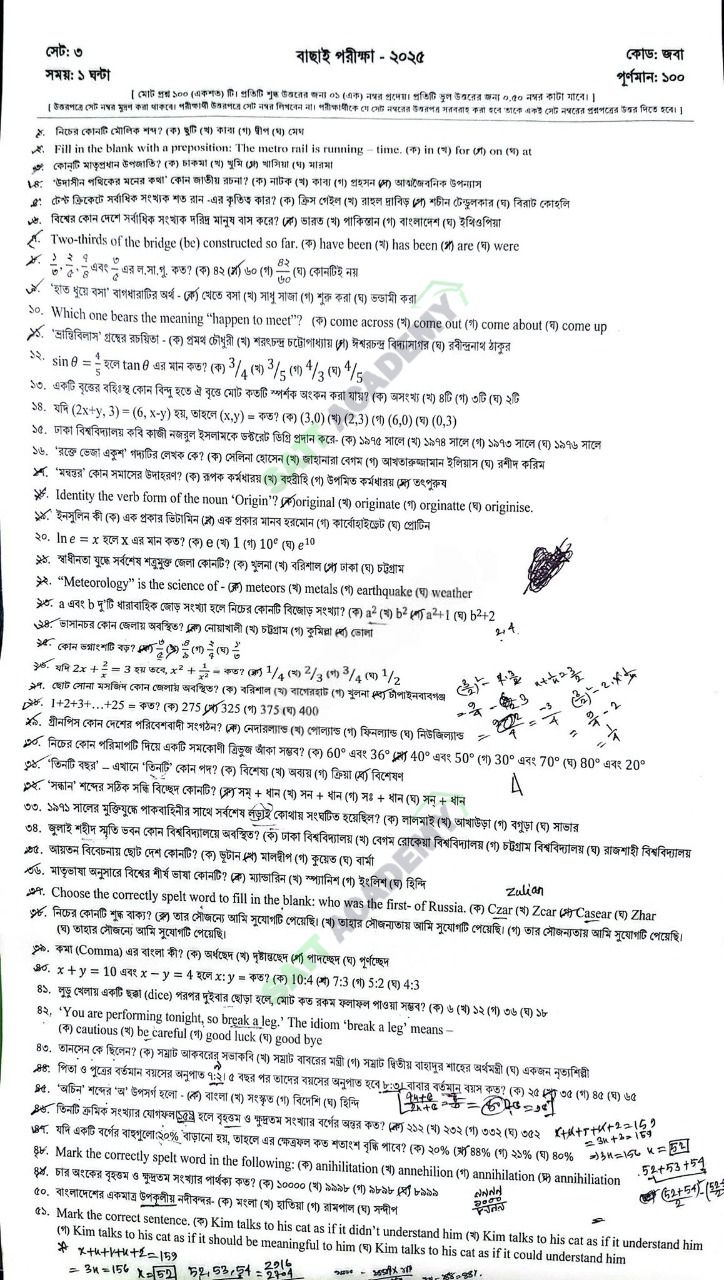 সেট: ৩
বাছাই পরীক্ষা - ২০২৫
কোড: জবা
সময়: ১ ঘন্টা
পূর্ণমান: ১০০
[ মোট প্রশ্ন ১০০ (একশত) টি। প্রতিটি শুদ্ধ উত্তরের জন্য ০১ (এক) নম্বর প্রদেয়। প্রতিটি ভুল উত্তরের জন্য ০.৫০ নম্বর কাটা যাবে। ]
[ উত্তরপত্রে সেট নম্বর মুদ্রণ করা থাকবে। পরীক্ষার্থী উত্তরপত্রে সেট নম্বর লিখবেন না। পরীক্ষার্থীকে যে সেট নম্বরের উত্তরপত্র সরবরাহ করা হবে তাকে একই সেট নম্বরের প্রশ্নপত্রের উত্তর দিতে হবে। ]
১. নিচের কোনটি মৌলিক শব্দ? (ক) ছুটি (খ) কাব্য (গ) দ্বীপ (ঘ) মেঘ
২. Fill in the blank with a preposition: The metro rail is running – time. (ক) in (খ) for (গ) on (ঘ) at
৩. কোনটি মাতৃপ্রধান উপজাতি? (ক) চাকমা (খ) খুমি (গ) খাসিয়া (ঘ) মারমা
৪. ‘উদাসীন পথিকের মনের কথা’ কোন জাতীয় রচনা? (ক) নাটক (খ) কাব্য (গ) প্রহসন (ঘ) আত্মজৈবনিক উপন্যাস
৫. টেস্ট ক্রিকেটে সর্বাধিক সংখ্যক শত রান -এর কৃতিত্ব কার? (ক) ক্রিস গেইল (খ) রাহুল দ্রাবিড় (গ) শচীন টেন্ডুলকার (ঘ) বিরাট কোহলি
৬. বিশ্বের কোন দেশে সর্বাধিক সংখ্যক দরিদ্র মানুষ বাস করে? (ক) ভারত (খ) পাকিস্তান (গ) বাংলাদেশ (ঘ) ইথিওপিয়া
৭. Two-thirds of the bridge (be) constructed so far. (ক) have been (খ) has been (গ) are (ঘ) were
৮. এবং এর ল.সা.গু. কত? (ক) ৪২ (খ) ৬০ (গ) ৪২/৬০ (ঘ) কোনটিই নয়
৯. ‘হাত ধুয়ে বসা’ বাগধারাটির অর্থ - (ক) খেতে বসা (খ) সাধু সাজা (গ) শুরু করা (ঘ) ভন্ডামী করা
১০. Which one bears the meaning “happen to meet”? (ক) come across (খ) come out (গ) come about (ঘ) come up
১১. ‘ভ্রান্তিবিলাস’ গ্রন্থের রচয়িতা - (ক) প্রমথ চৌধুরী (খ) শরৎচন্দ্র চট্টোপাধ্যায় (গ) ঈশ্বরচন্দ্র বিদ্যাসাগর (ঘ) রবীন্দ্রনাথ ঠাকুর
১২. sin θ = 4/5 হলে tan θ এর মান কত? (ক) 3/4 (খ) 3/5 (গ) 4/3 (ঘ) 4/5
১৩. একটি বৃত্তের বহিঃস্থ কোন বিন্দু হতে ঐ বৃত্তে মোট কতটি স্পর্শক অংকন করা যায়? (ক) অসংখ্য (খ) ৪টি (গ) ৩টি (ঘ) ২টি
১৪. যদি (2x+y, 3) = (6, x-y) হয়, তাহলে (x,y) = কত? (ক) (3,0) (খ) (2,3) (গ) (6,0) (ঘ) (0,3)
১৫. ঢাকা বিশ্ববিদ্যালয় কবি কাজী নজরুল ইসলামকে ডক্টরেট ডিগ্রি প্রদান করে- (ক) ১৯৭৫ সালে (খ) ১৯৭৪ সালে (গ) ১৯৭৩ সালে (ঘ) ১৯৭৬ সালে
১৬. ‘রক্তে ভেজা একুশ’ গদ্যটির লেখক কে? (ক) সেলিনা হোসেন (খ) জাহানারা বেগম (গ) আখতারুজ্জামান ইলিয়াস (ঘ) রশীদ করিম
১৭. ‘মন্বন্তর’ কোন সমাসের উদাহরণ? (ক) রূপক কর্মধারয় (খ) বহুব্রীহি (গ) উপমিত কর্মধারয় (ঘ) তৎপুরুষ
১৮. Identity the verb form of the noun ‘Origin’? (ক) original (খ) originate (গ) orginatte (ঘ) originise.
১৯. ইনসুলিন কী (ক) এক প্রকার ভিটামিন (খ) এক প্রকার মানব হরমোন (গ) কার্বোহাইড্রেট (ঘ) প্রোটিন
২০. ln e = x হলে x এর মান কত? (ক) e (খ) 1 (গ) 10^e (ঘ) e^10
২১. স্বাধীনতা যুদ্ধে সর্বশেষ শত্রুমুক্ত জেলা কোনটি? (ক) খুলনা (খ) বরিশাল (গ) ঢাকা (ঘ) চট্টগ্রাম
২২. “Meteorology” is the science of - (ক) meteors (খ) metals (গ) earthquake (ঘ) weather
২৩. a এবং b দু’টি ধারাবাহিক জোড় সংখ্যা হলে নিচের কোনটি বিজোড় সংখ্যা? (ক) a² (খ) b² (গ) a²+1 (ঘ) b²+2
২৪. ভাসানচর কোন জেলায় অবস্থিত? (ক) নোয়াখালী (খ) চট্টগ্রাম (গ) কুমিল্লা (ঘ) ভোলা
2, 4
২৫. কোন ভগ্নাংশটি বড়?
২৬. যদি 2x + 2/x = 3 হয় তবে, x² + 1/x² = কত? (ক) 1/4 (খ) 2/3 (গ) 3/4 (ঘ) 1/2
২৭. ছোট সোনা মসজিদ কোন জেলায় অবস্থিত? (ক) বরিশাল (খ) বাগেরহাট (গ) খুলনা (ঘ) চাঁপাইনবাবগঞ্জ
২৮. 1+2+3+…+25 = কত? (ক) 275 (খ) 325 (গ) 375 (ঘ) 400
২৯. গ্রীনপিস কোন দেশের পরিবেশবাদী সংগঠন? (ক) নেদারল্যান্ড (খ) পোল্যান্ড (গ) ফিনল্যান্ড (ঘ) নিউজিল্যান্ড
৩০. নিচের কোন পরিমাপটি দিয়ে একটি সমকোণী ত্রিভুজ আঁকা সম্ভব? (ক) 60° এবং 36° (খ) 40° এবং 50° (গ) 30° এবং 70° (ঘ) 80° এবং 20°
৩১. ‘তিনটি বছর’ – এখানে ‘তিনটি’ কোন পদ? (ক) বিশেষ্য (খ) অব্যয় (গ) ক্রিয়া (ঘ) বিশেষণ
৩২. ‘সন্ধান’ শব্দের সঠিক সন্ধি বিচ্ছেদ কোনটি? (ক) সম্ + ধান (খ) সন + ধান (গ) সঃ + ধান (ঘ) সন্ + ধান
৩৩. ১৯৭১ সালের মুক্তিযুদ্ধে পাকবাহিনীর সাথে সর্বশেষ লড়াই কোথায় সংঘটিত হয়েছিল? (ক) লালমাই (খ) আখাউড়া (গ) বগুড়া (ঘ) সাভার
৩৪. জুলাই শহীদ স্মৃতি ভবন কোন বিশ্ববিদ্যালয়ে অবস্থিত? (ক) ঢাকা বিশ্ববিদ্যালয় (খ) বেগম রোকেয়া বিশ্ববিদ্যালয় (গ) চট্টগ্রাম বিশ্ববিদ্যালয় (ঘ) রাজশাহী বিশ্ববিদ্যালয়
৩৫. আয়তন বিবেচনায় ছোট দেশ কোনটি? (ক) ভুটান (খ) মালদ্বীপ (গ) কুয়েত (ঘ) বার্মা
৩৬. মাতৃভাষা অনুসারে বিশ্বের শীর্ষ ভাষা কোনটি? (ক) ম্যান্ডারিন (খ) স্প্যানিশ (গ) ইংলিশ (ঘ) হিন্দি
zulian
৩৭. Choose the correctly spelt word to fill in the blank: who was the first- of Russia. (ক) Czar (খ) Zcar (গ) Casear (ঘ) Zhar
৩৮. নিচের কোনটি শুদ্ধ বাক্য? (ক) তার সৌজন্যে আমি সুযোগটি পেয়েছি। (খ) তাহার সৌজন্যতায় আমি সুযোগটি পেয়েছি। (গ) তার সৌজন্যতায় আমি সুযোগটি পেয়েছি।
(ঘ) তাহার সৌজন্যে আমি সুযোগটি পেয়েছি।
৩৯. কমা (Comma) এর বাংলা কী? (ক) অর্ধচ্ছেদ (খ) দৃষ্টান্তচ্ছেদ (গ) পাদচ্ছেদ (ঘ) পূর্ণচ্ছেদ
৪০. x + y = 10 এবং x − y = 4 হলে x: y = কত? (ক) 10:4 (খ) 7:3 (গ) 5:2 (ঘ) 4:3
৪১. লুডু খেলায় একটি ছক্কা (dice) পরপর দুইবার ছোড়া হলে, মোট কত রকম ফলাফল পাওয়া সম্ভব? (ক) ৬ (খ) ১২ (গ) ৩৬ (ঘ) ১৮
৪২. ‘You are performing tonight, so break a leg.’ The idiom ‘break a leg’ means –
(ক) cautious (খ) be careful (গ) good luck (ঘ) good bye
৪৩. তানসেন কে ছিলেন? (ক) সম্রাট আকবরের সভাকবি (খ) সম্রাট বাবরের মন্ত্রী (গ) সম্রাট দ্বিতীয় বাহাদুর শাহের অর্থমন্ত্রী (ঘ) একজন নৃত্যশিল্পী
৪৪. পিতা ও পুত্রের বর্তমান বয়সের অনুপাত ৭:২। ৫ বছর পর তাদের বয়সের অনুপাত হবে ৮:৩। বাবার বর্তমান বয়স কত? (ক) ২৫ (খ) ৩৫ (গ) ৪৫ (ঘ) ৬৫
৪৫. ‘অচিন’ শব্দের ‘অ’ উপসর্গ হলো - (ক) বাংলা (খ) সংস্কৃত (গ) বিদেশি (ঘ) হিন্দি
৪৬. তিনটি ক্রমিক সংখ্যার যোগফল ১৫৯ হলে বৃহত্তম ও ক্ষুদ্রতম সংখ্যার বর্গের অন্তর কত? (ক) ২১২ (খ) ২৩২ (গ) ৩৩২ (ঘ) ৩৫২
৪৭. যদি একটি বর্গের বাহুগুলো ২০% বাড়ানো হয়, তাহলে এর ক্ষেত্রফল কত শতাংশ বৃদ্ধি পাবে? (ক) ২০% (খ) 88% (গ) ২১% (ঘ) 80%
=> 3x = 156 x = 52
৪৮. Mark the correctly spelt word in the following: (ক) anihilitation (খ) annehilion (গ) annihilation (ঘ) annihiliation
52+53+54
৪৯. চার অংকের বৃহত্তম ও ক্ষুদ্রতম সংখ্যার পার্থক্য কত? (ক) ১০০০০ (খ) ৯৯৯৮ (গ) ৯৮৯৮ (ঘ) ৮৯৯৯
৫০. বাংলাদেশের একমাত্র উপকূলীয় নদীবন্দর- (ক) মংলা (খ) হাতিয়া (গ) রামপাল (ঘ) সন্দীপ
৫১. Mark the correct sentence. (ক) Kim talks to his cat as if it didn’t understand him (খ) Kim talks to his cat as if it understand him
(গ) Kim talks to his cat as if it should be meaningful to him (ঘ) Kim talks to his cat as if it could understand him
= 3x = 156 x = 52 52, 53, 54 = 2916
2704
SATT ACADEMY
SATT ACADEMY